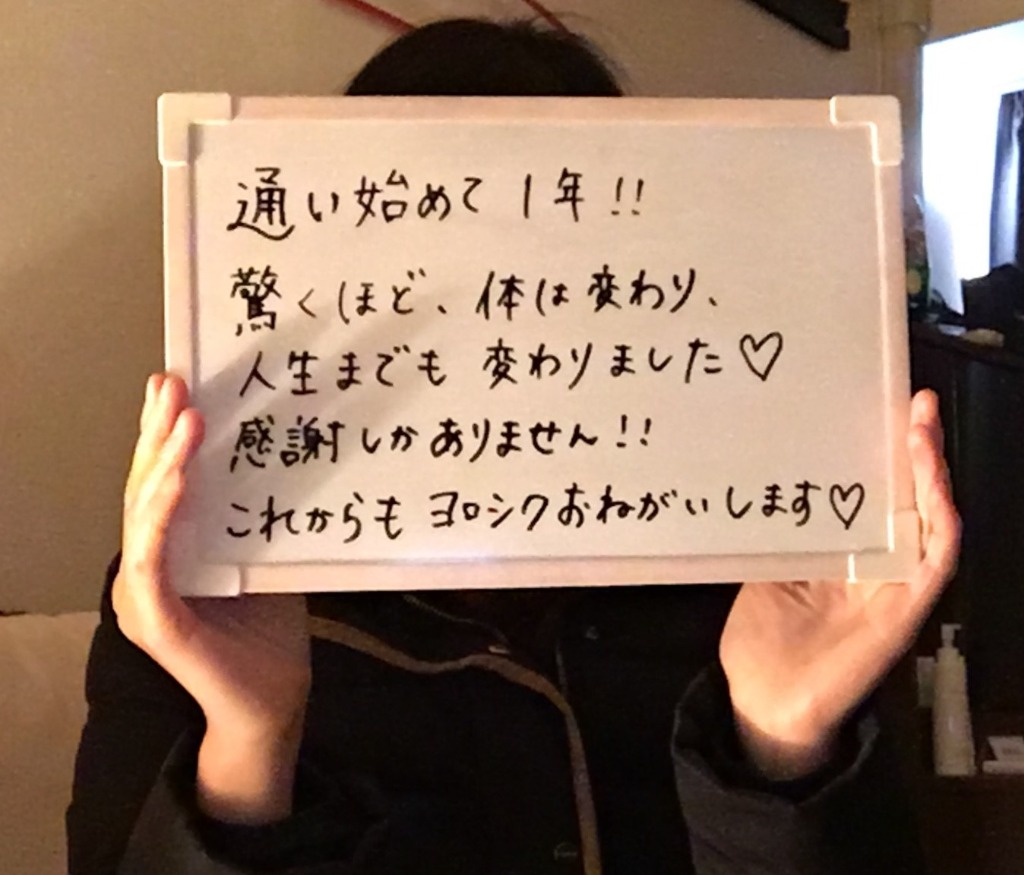 通い始めて1年!!
驚くほど、体は変わり、
人生までも変わりました♡
感謝しかありません!!
これからもヨロシクおねがいします♡